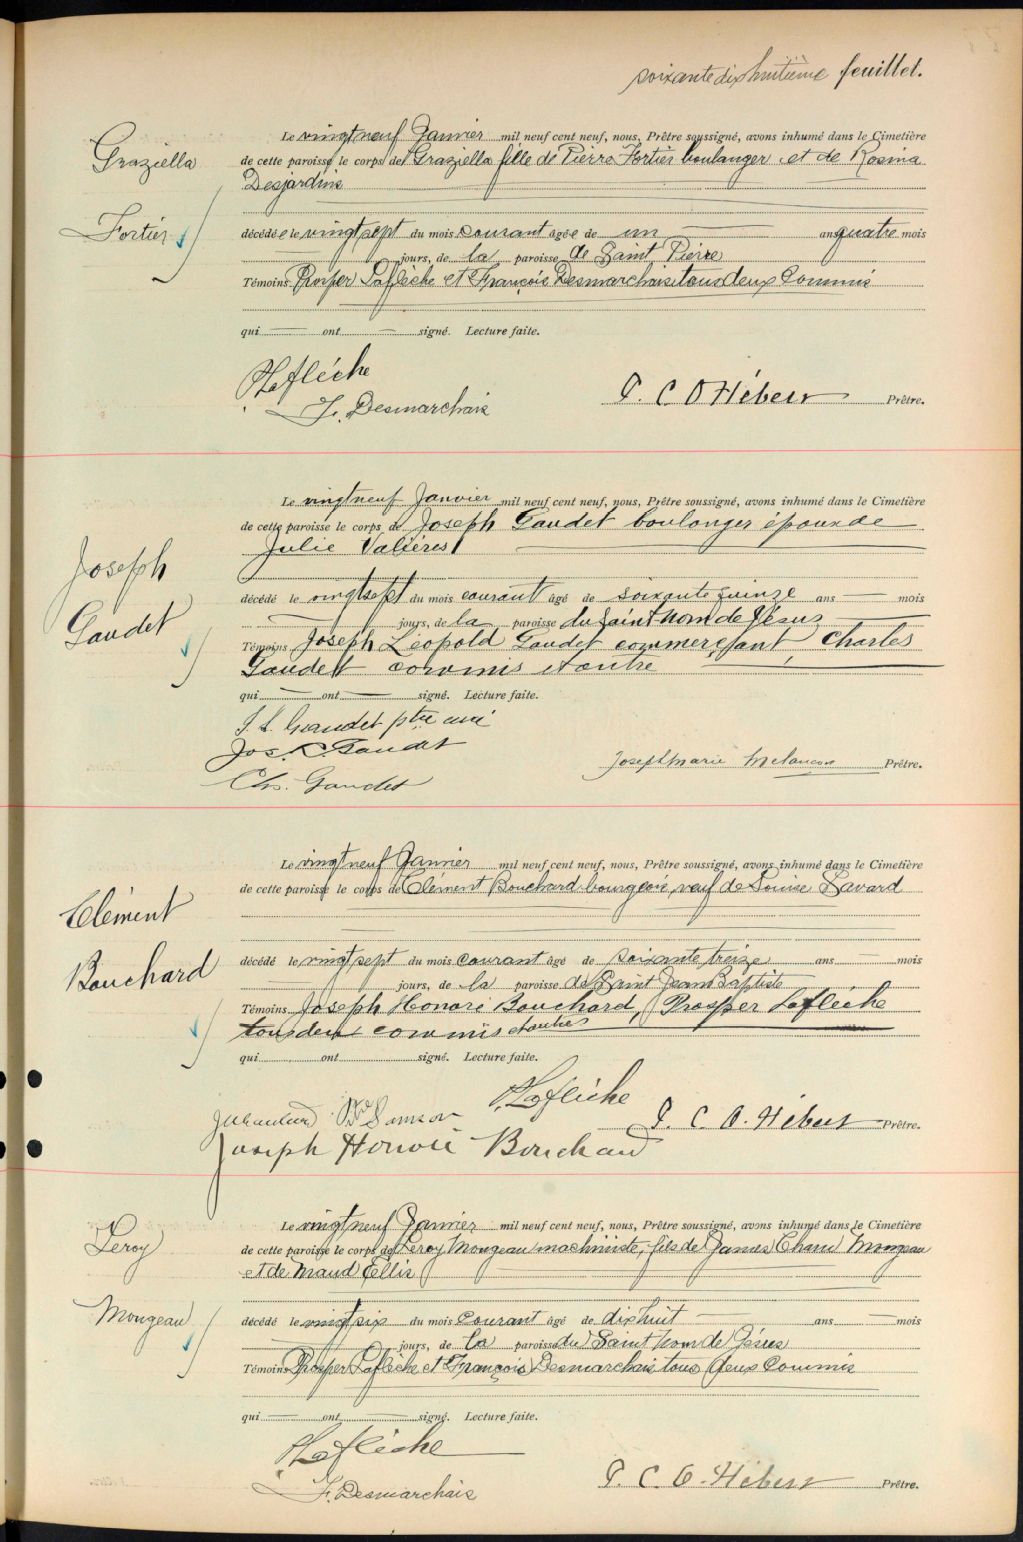 soixante dix huitième feuillet.
Graziella
Fortier
Le vingt neuf Janvier mil neuf cent neuf, nous, Prêtre soussigné, avons inhumé dans le Cimetière
de cette paroisse le corps de Graziella fille de Pierre Fortier boulanger et de Rosina
Desjardins
décédée le vingt sept du mois courant âgée de un ans quatre mois
jours, de la paroisse de Saint Pierre
Témoins Prosper Laflèche et François Desmarchais tous deux Commis
qui ont signé. Lecture faite.
PLaflèche
F. Desmarchais
P. C. O Hébert Prêtre.
Joseph
Gaudet
Le vingt neuf Janvier mil neuf cent neuf, nous, Prêtre soussigné, avons inhumé dans le Cimetière
de cette paroisse le corps de Joseph Gaudet boulanger époux de
Julie Valières
décédé le vingt sept du mois courant âgé de soixante quinze ans mois
jours, de la paroisse du Saint Nom de Jésus
Témoins Joseph Léopold Gaudet commerçant, Charles
Gaudet commis et autre
qui ont signé. Lecture faite.
Gaudet ptre curé
Jos. Gaudet
Ch. Gaudet
Joseph Marie Melançon Prêtre.
Clément
Bouchard
Le vingt neuf Janvier mil neuf cent neuf, nous, Prêtre soussigné, avons inhumé dans le Cimetière
de cette paroisse le corps de Clément Bouchard bourgeois, veuf de Louise Savard
décédé le vingt sept du mois courant âgé de soixante treize ans mois
jours, de la paroisse de Saint Jean Baptiste
Témoins Joseph Honoré Bouchard, Prosper Laflèche
tous deux commis et autres
qui ont signé. Lecture faite.
P. Laflèche
Samson
P. C. O. Hébert Prêtre.
Joseph Honoré Bouchard
Leroy
Mongeau
Le vingt neuf Janvier mil neuf cent neuf, nous, Prêtre soussigné, avons inhumé dans le Cimetière
de cette paroisse le corps de Leroy Mongeau machiniste, fils de James Mongeau
et de Maud Ellis
décédé le vingt six du mois courant âgé de dix huit ans mois
jours, de la paroisse du Saint Nom de Jésus
Témoins Prosper Laflèche et François Desmarchais tous deux Commis
qui ont signé. Lecture faite.
PLaflèche
F. Desmarchais
P. C. O. Hébert Prêtre.